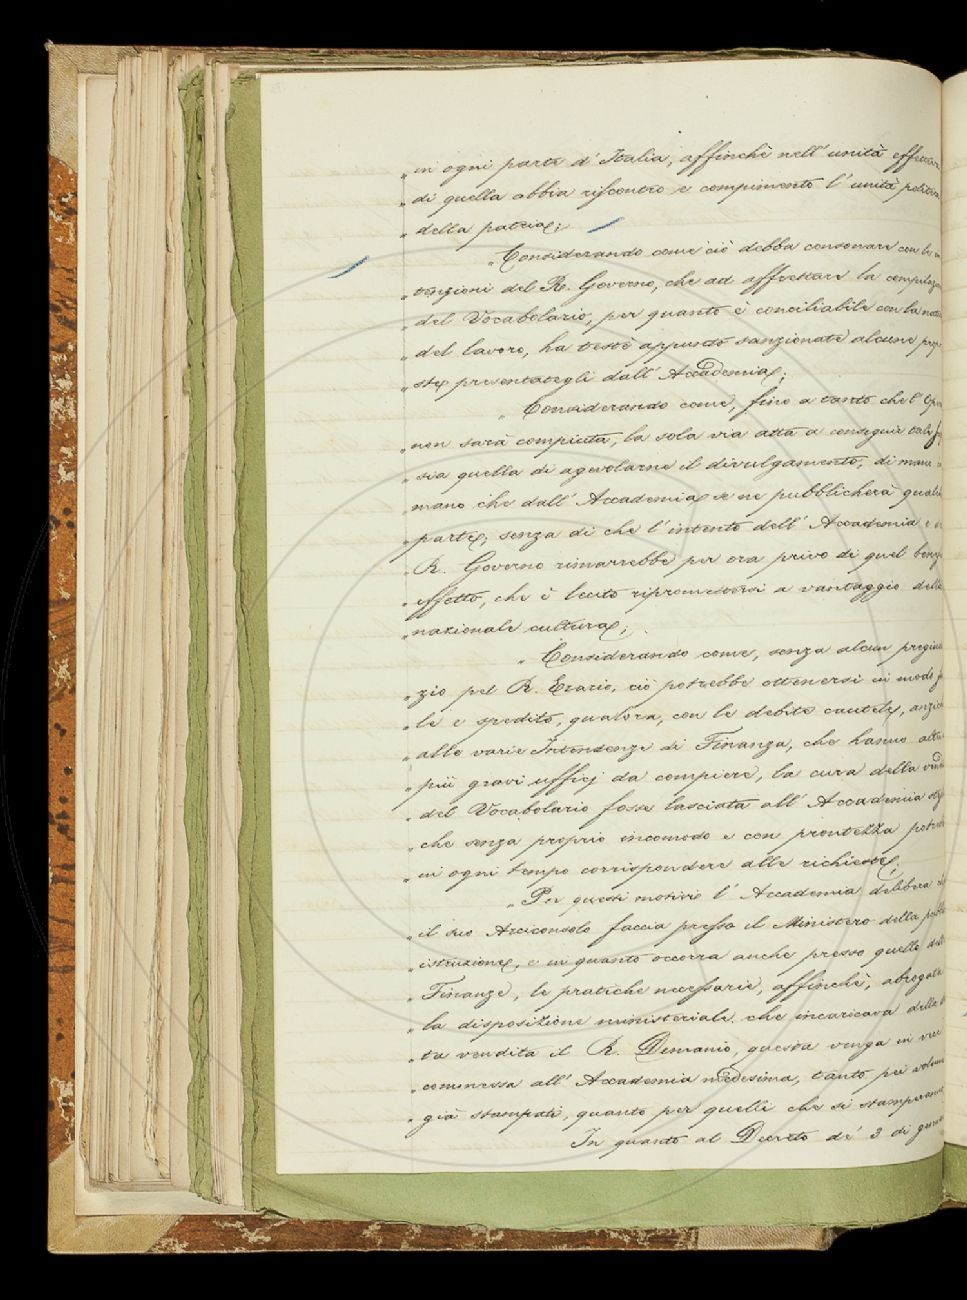 „ in ogni parte d' Italia, affinchè nell' unità effettiva
„ di quella abbia riscontro e compimento l' unità politica
„ della patria;
„ Considerando come ciò debba consonare con le in
„ tenzioni del R. Governo, che ad affrettare la compilazio
„ del Vocabolario, per quanto è conciliabile con la natu
„ del lavoro, ha testè appunto sanzionate alcune propo
„ ste presentategli dall' Accademia;
„ Considerando come, fino a tanto che l' Opera
„ non sarà compiuta, la sola via atta a conseguir tale
„ sia quella di agevolarne il divulgamento, di mano in
„ mano che dall' Accademia se ne pubblicherà qualche
„ parte; senza di che l' intento dell' Accademia e del
„ R. Governo rimarrebbe per ora privo di quel
„ effetto, che è lecito ripromettersi a vantaggio della
„ nazionale cultura;
„ Considerando come, senza alcun pregiudi
„ zio pel R. Erario, ciò potrebbe ottenersi in modo
„ le e spedito, qualora, con le debite cautele, anzichè
„ alle varie Intendenze di Finanza, che hanno altri
„ più gravi ufficj da compiere, la cura della vendi
„ del Vocabolario fosse lasciata all' Accademia
„ che senza proprio incomodo e con prontezza potrebbe
„ in ogni tempo corrispondere alle richieste;
„ Per questi motivi l' Accademia delibera
„ il suo Arciconsolo faccia presso il Ministero della pubbl
„ istruzione, e in quanto occorra anche presso quello delle
„ Finanze, le pratiche necessarie, affinchè, abrogata
„ la disposizione ministeriale che incaricava della
„ ta vendita il R. Demanio, questa venga in vece
„ commessa all' Accademia medesima, tanto pei volumi
„ già stampati, quanto per quelli che si stamperanno
In quanto al Decreto de' 3 di genna